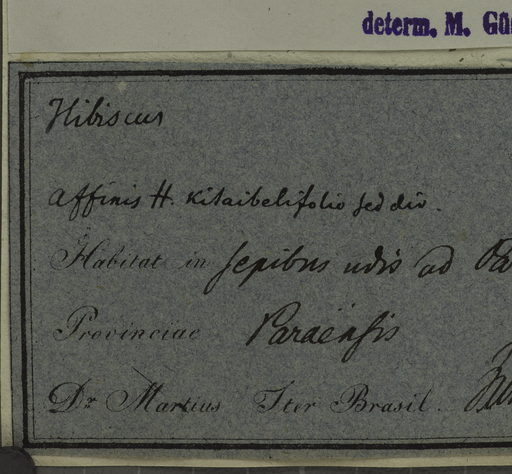 determ. M. Gü
Hibiscus
affinis H. kitaibelifolio sed div.
Habitat in sepibus udis ad Pa
Provinciae Paraensis
Dr Martius Iter Brasil.